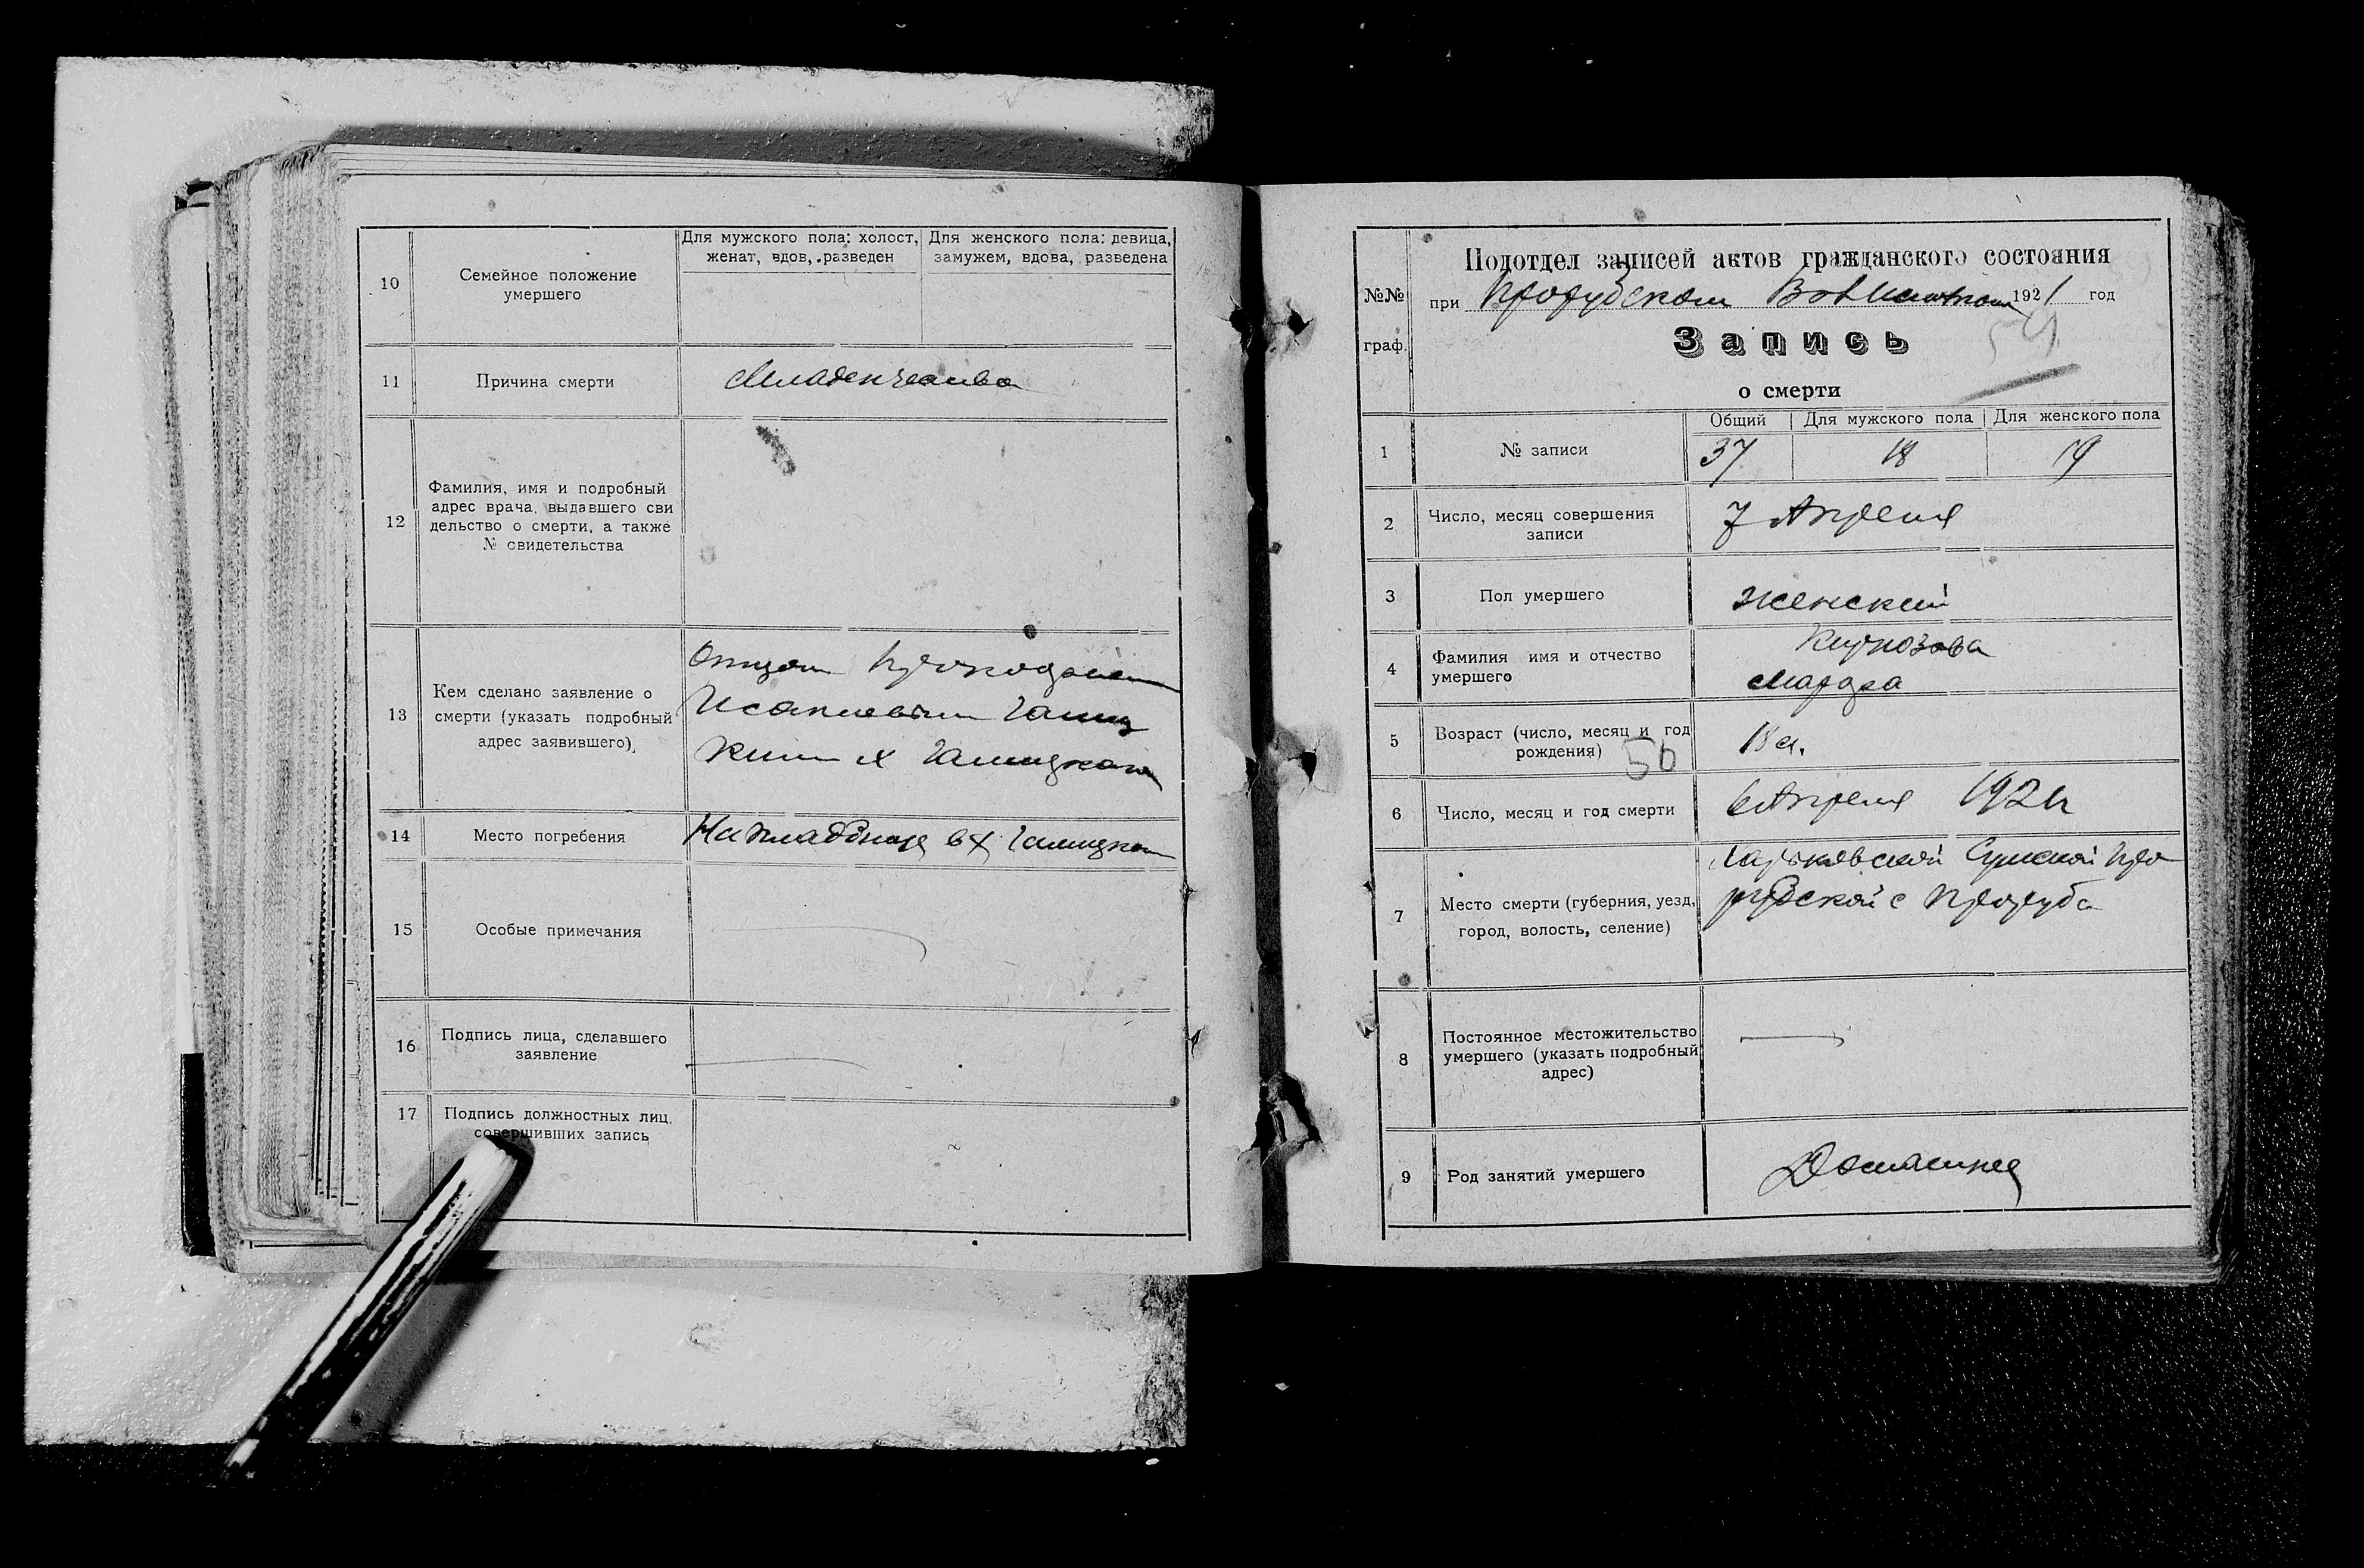 10
Семейное положение
умершего
Для мужского пола: холост,
женат, вдов, разведен
Для женского пола: девица,
замужем, вдова, разведена
11
Причина смерти
Младенчества
12
Фамилия, имя и подробный
адрес врача, выдавшего сви
дельство о смерти, а также
№ свидетельства
13
Кем сделано заявление о
смерти (указать подробный
адрес заявившего).
Отцом
Исакиевым Галиц
ким х Галицкаго
14
Место погребения
На кладбище в х Галицком
15
Особые примечания
16
Подпись лица, сделавшего
заявление
17
Подпись должностных лиц.
совершивших запись
№№
граф.
Подотдел записей актов гражданского состояния
при Прорубском Волисполкоме 1921 год
Запись
54
о смерти
1
№ записи
Общий
Для мужского пола
Для женского пола
37
18
19
2
Число, месяц совершения
записи
7 Апреля
3
Пол умершего
Женский
4
Фамилия имя и отчество
умершего
Курнозова
5
Возраст (число, месяц и год
рождения)
50
18 л.
6
Число, месяц и год смерти
6 Апреля 1921
7
Место смерти (губерния, уезд,
город, волость, селение)
Харьковской Сумской Про
рубской с Прорубь
8
Постоянное местожительство
умершего (указать подробный
адрес)
9
Род занятий умершего
Домашнее